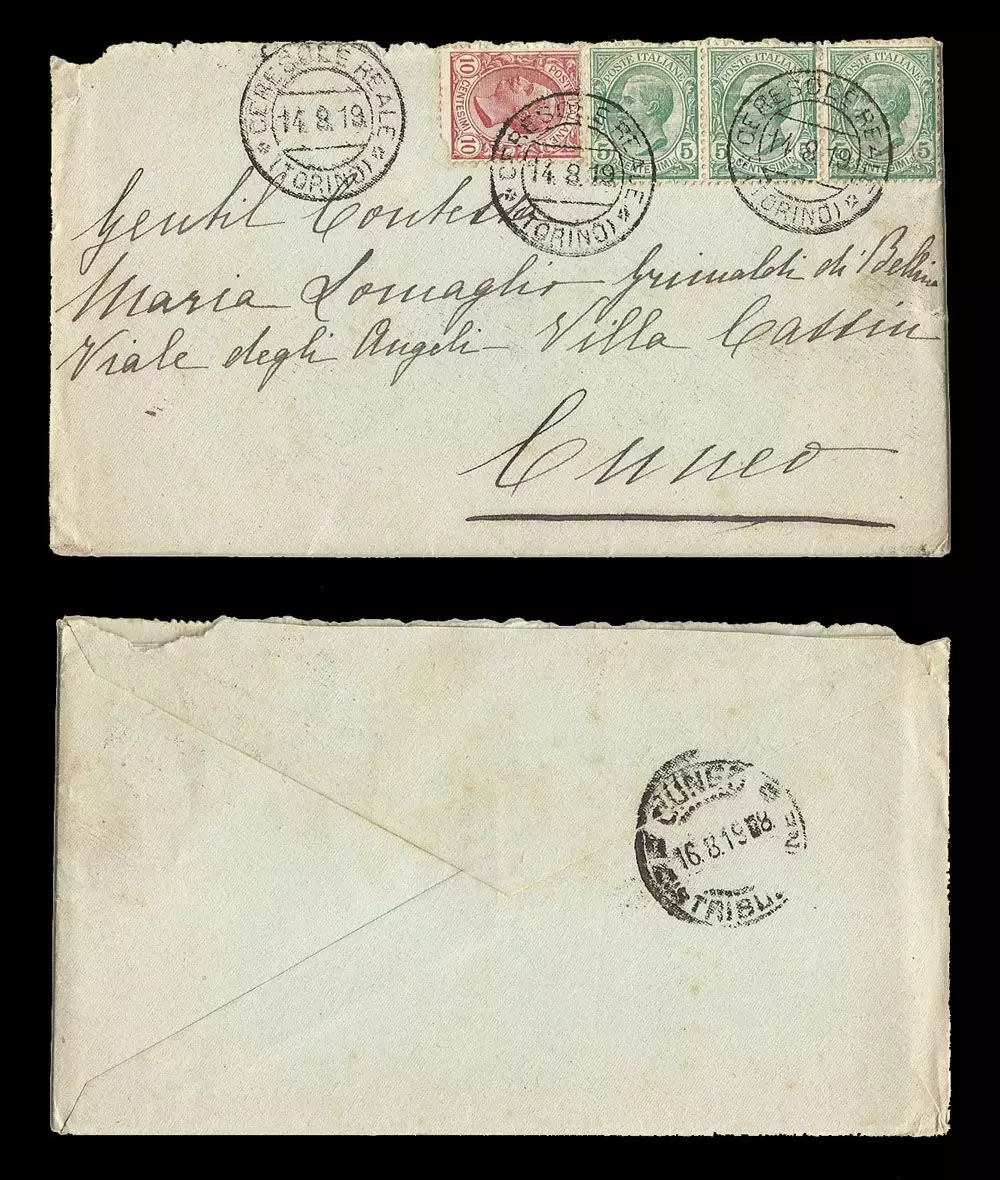 CERESOLE REALE
14.8.19
(TORINO)
10 POSTE ITALIANE 10
CENTESIMI
POSTE ITALIANE
5 CENTESIMI 5
POSTE ITALIANE
5 CENTESIMI 5
POSTE ITALIANE
5 CENTESIMI 5
CERESOLE REALE
14.8.19
(TORINO)
CERESOLE REALE
14.8.19
(TORINO)
Gentil Contessa
Maria Lomaglio Grimaldi di Bellino
Viale degli Angeli Villa Cassin
Cuneo
CUNEO
16.8.19
DISTRIBUZ